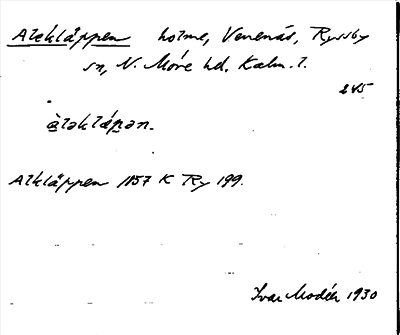 Alekläppen holme, Venenäs, Ryssby
sn, N. Möre hd. Kalm. l.
245
àləklápən.
Alkläppen 1857 K Ry 199.
Ivar Modéer 1930